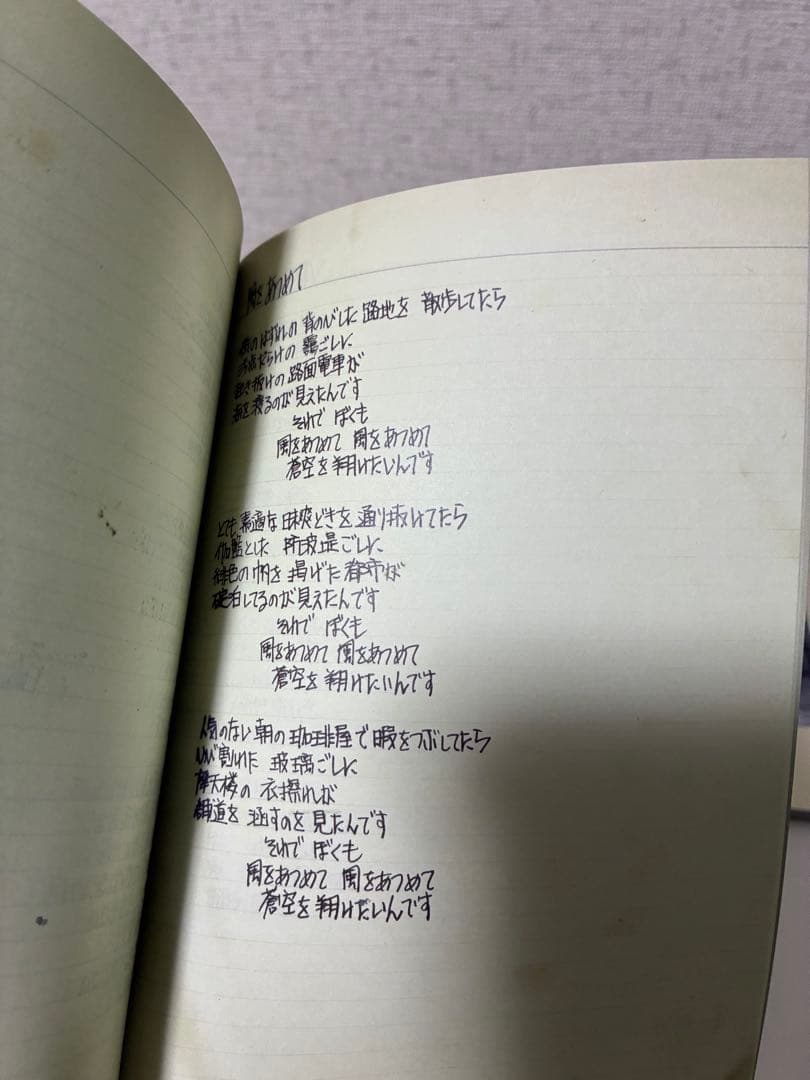 風をあつめて
街のはずれの 背のびした 路地を 散歩してたら
汚点だらけの 靄ごしに
起き抜けの 路面電車が
海を渡るのが 見えたんです
それで ぼくも
風をあつめて 風をあつめて
蒼空を翔けたいんです
とても 素適な 昧爽どきを 通り抜けてたら
伽藍とした 防波堤ごしに
緋色の帆を 掲げた 都市が
碇泊してるのが 見えたんです
それで ぼくも
風をあつめて 風をあつめて
蒼空を 翔けたいんです
人気のない 朝の 珈琲屋で 暇をつぶしてたら
ひび割れた 玻璃ごしに
摩天楼の 衣擦れが
舗道を 浸すのを 見たんです
それで ぼくも
風をあつめて 風をあつめて
蒼空を 翔けたいんです